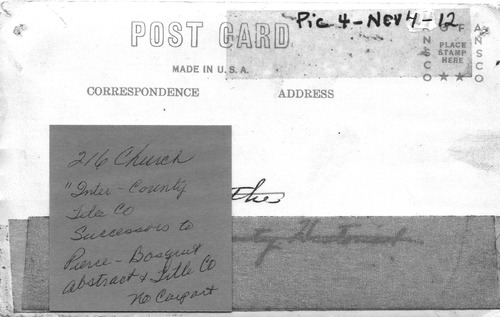 Pic 4-Nev 4-12
POST CARD
MADE IN U.S.A.
ANSCO
PLACE
STAMP
HERE
ANSCO
CORRESPONDENCE ADDRESS
216 Church
"Inter-County
Title Co
Successors to
Pierce-Bosquit
Abstract & Title Co
No Carport
the